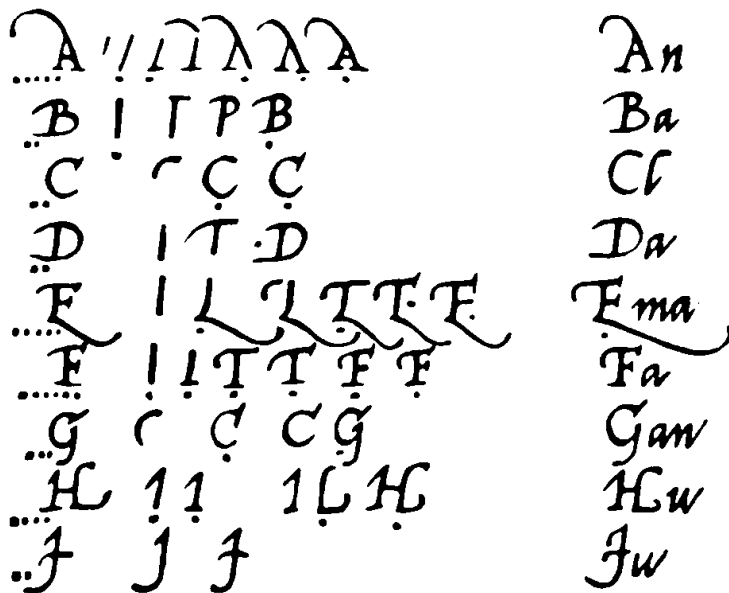 A A An
B P B Ba
C C C Cl
D D Da
E E Ema
F F F Fa
G C C G Gan
H H Hu
J J J Ju